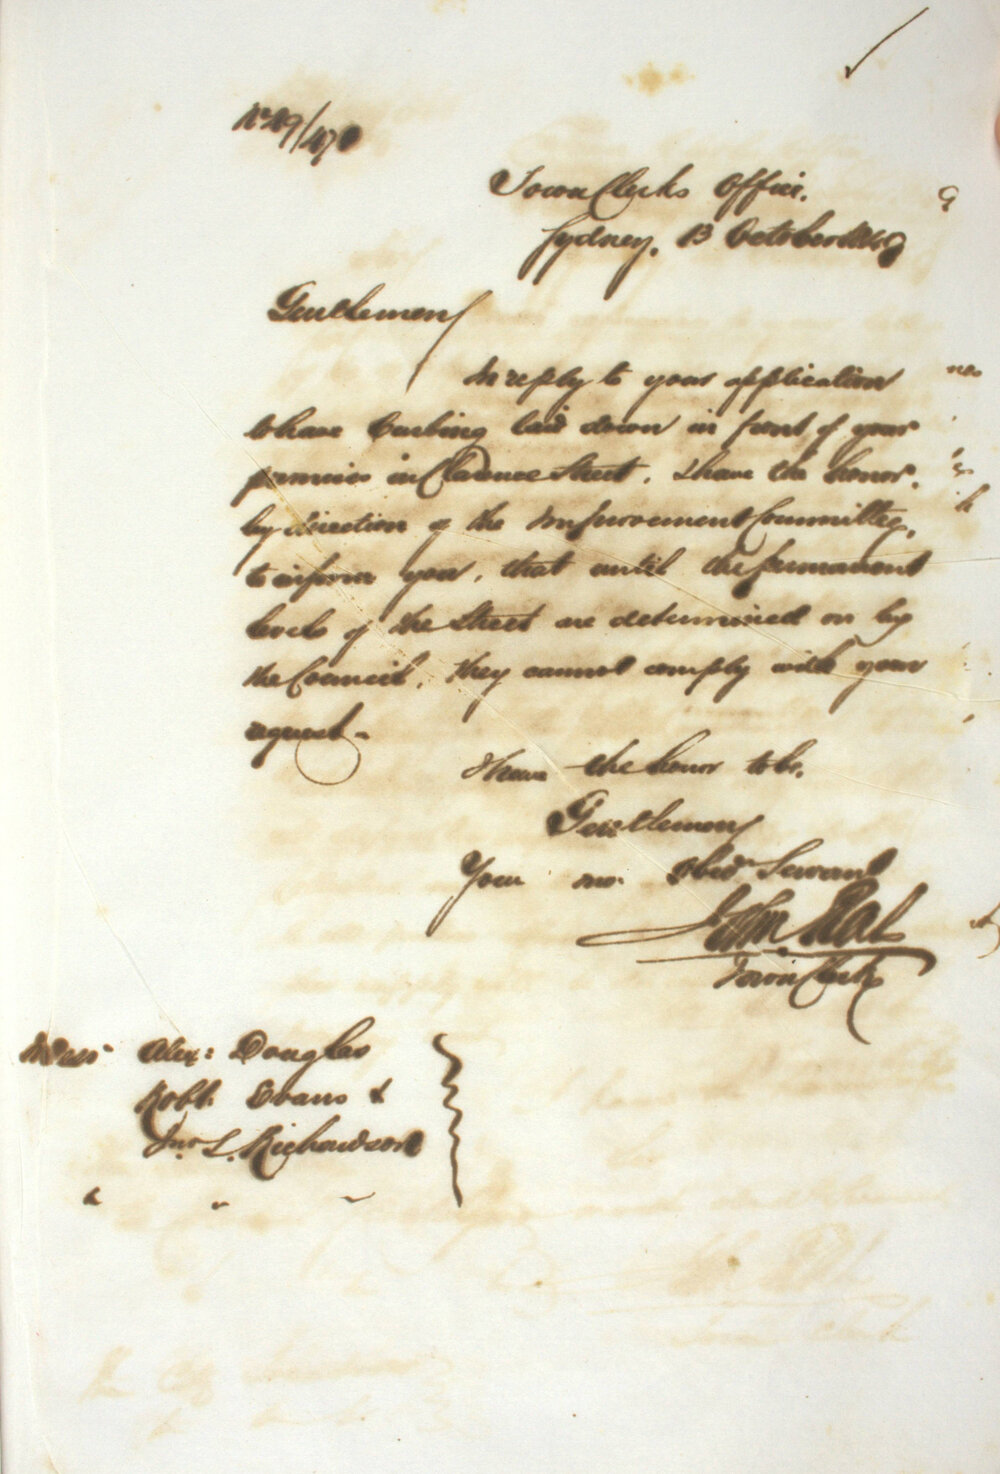 No 49/470
Town Clerks Office.
Sydney. 13 October 1849
Gentlemen
In reply to your application
to have Curbing laid down in front of your
premises in Clarence Street. I have the honor,
by direction of the Improvement Committee,
to inform you, that until the permanent
levels of the Street are determined on by
the Council, they cannot comply with your
request -
I have the honor to be.
Gentlemen
Your mo. Obed Servant
John Rae
Town Clerk
Messrs Alex: Douglas
Robt. Evans &
Jno. L. Richardson